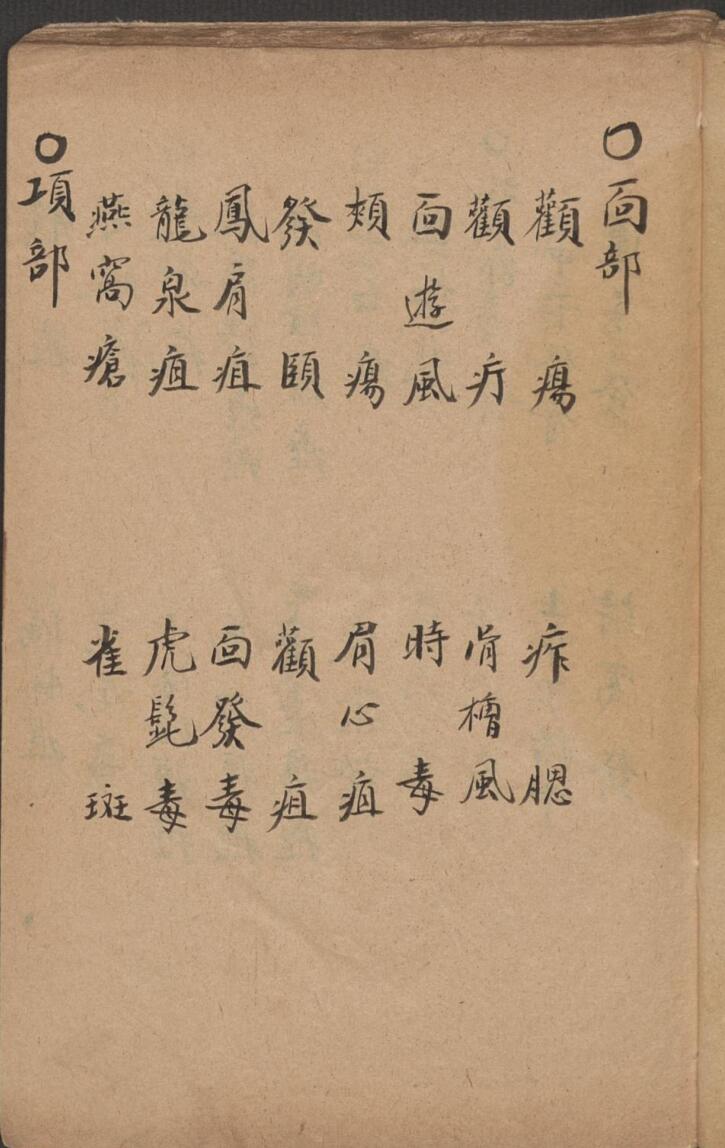 〇面部
顴瘍 痄腮
顴疔 骨槽風
面遊風 時毒
頰瘍 眉心疽
發頤 顴疽
鳳肩疽 面發毒
龍泉疽 虎髭毒
燕窩瘡 雀斑
〇項部